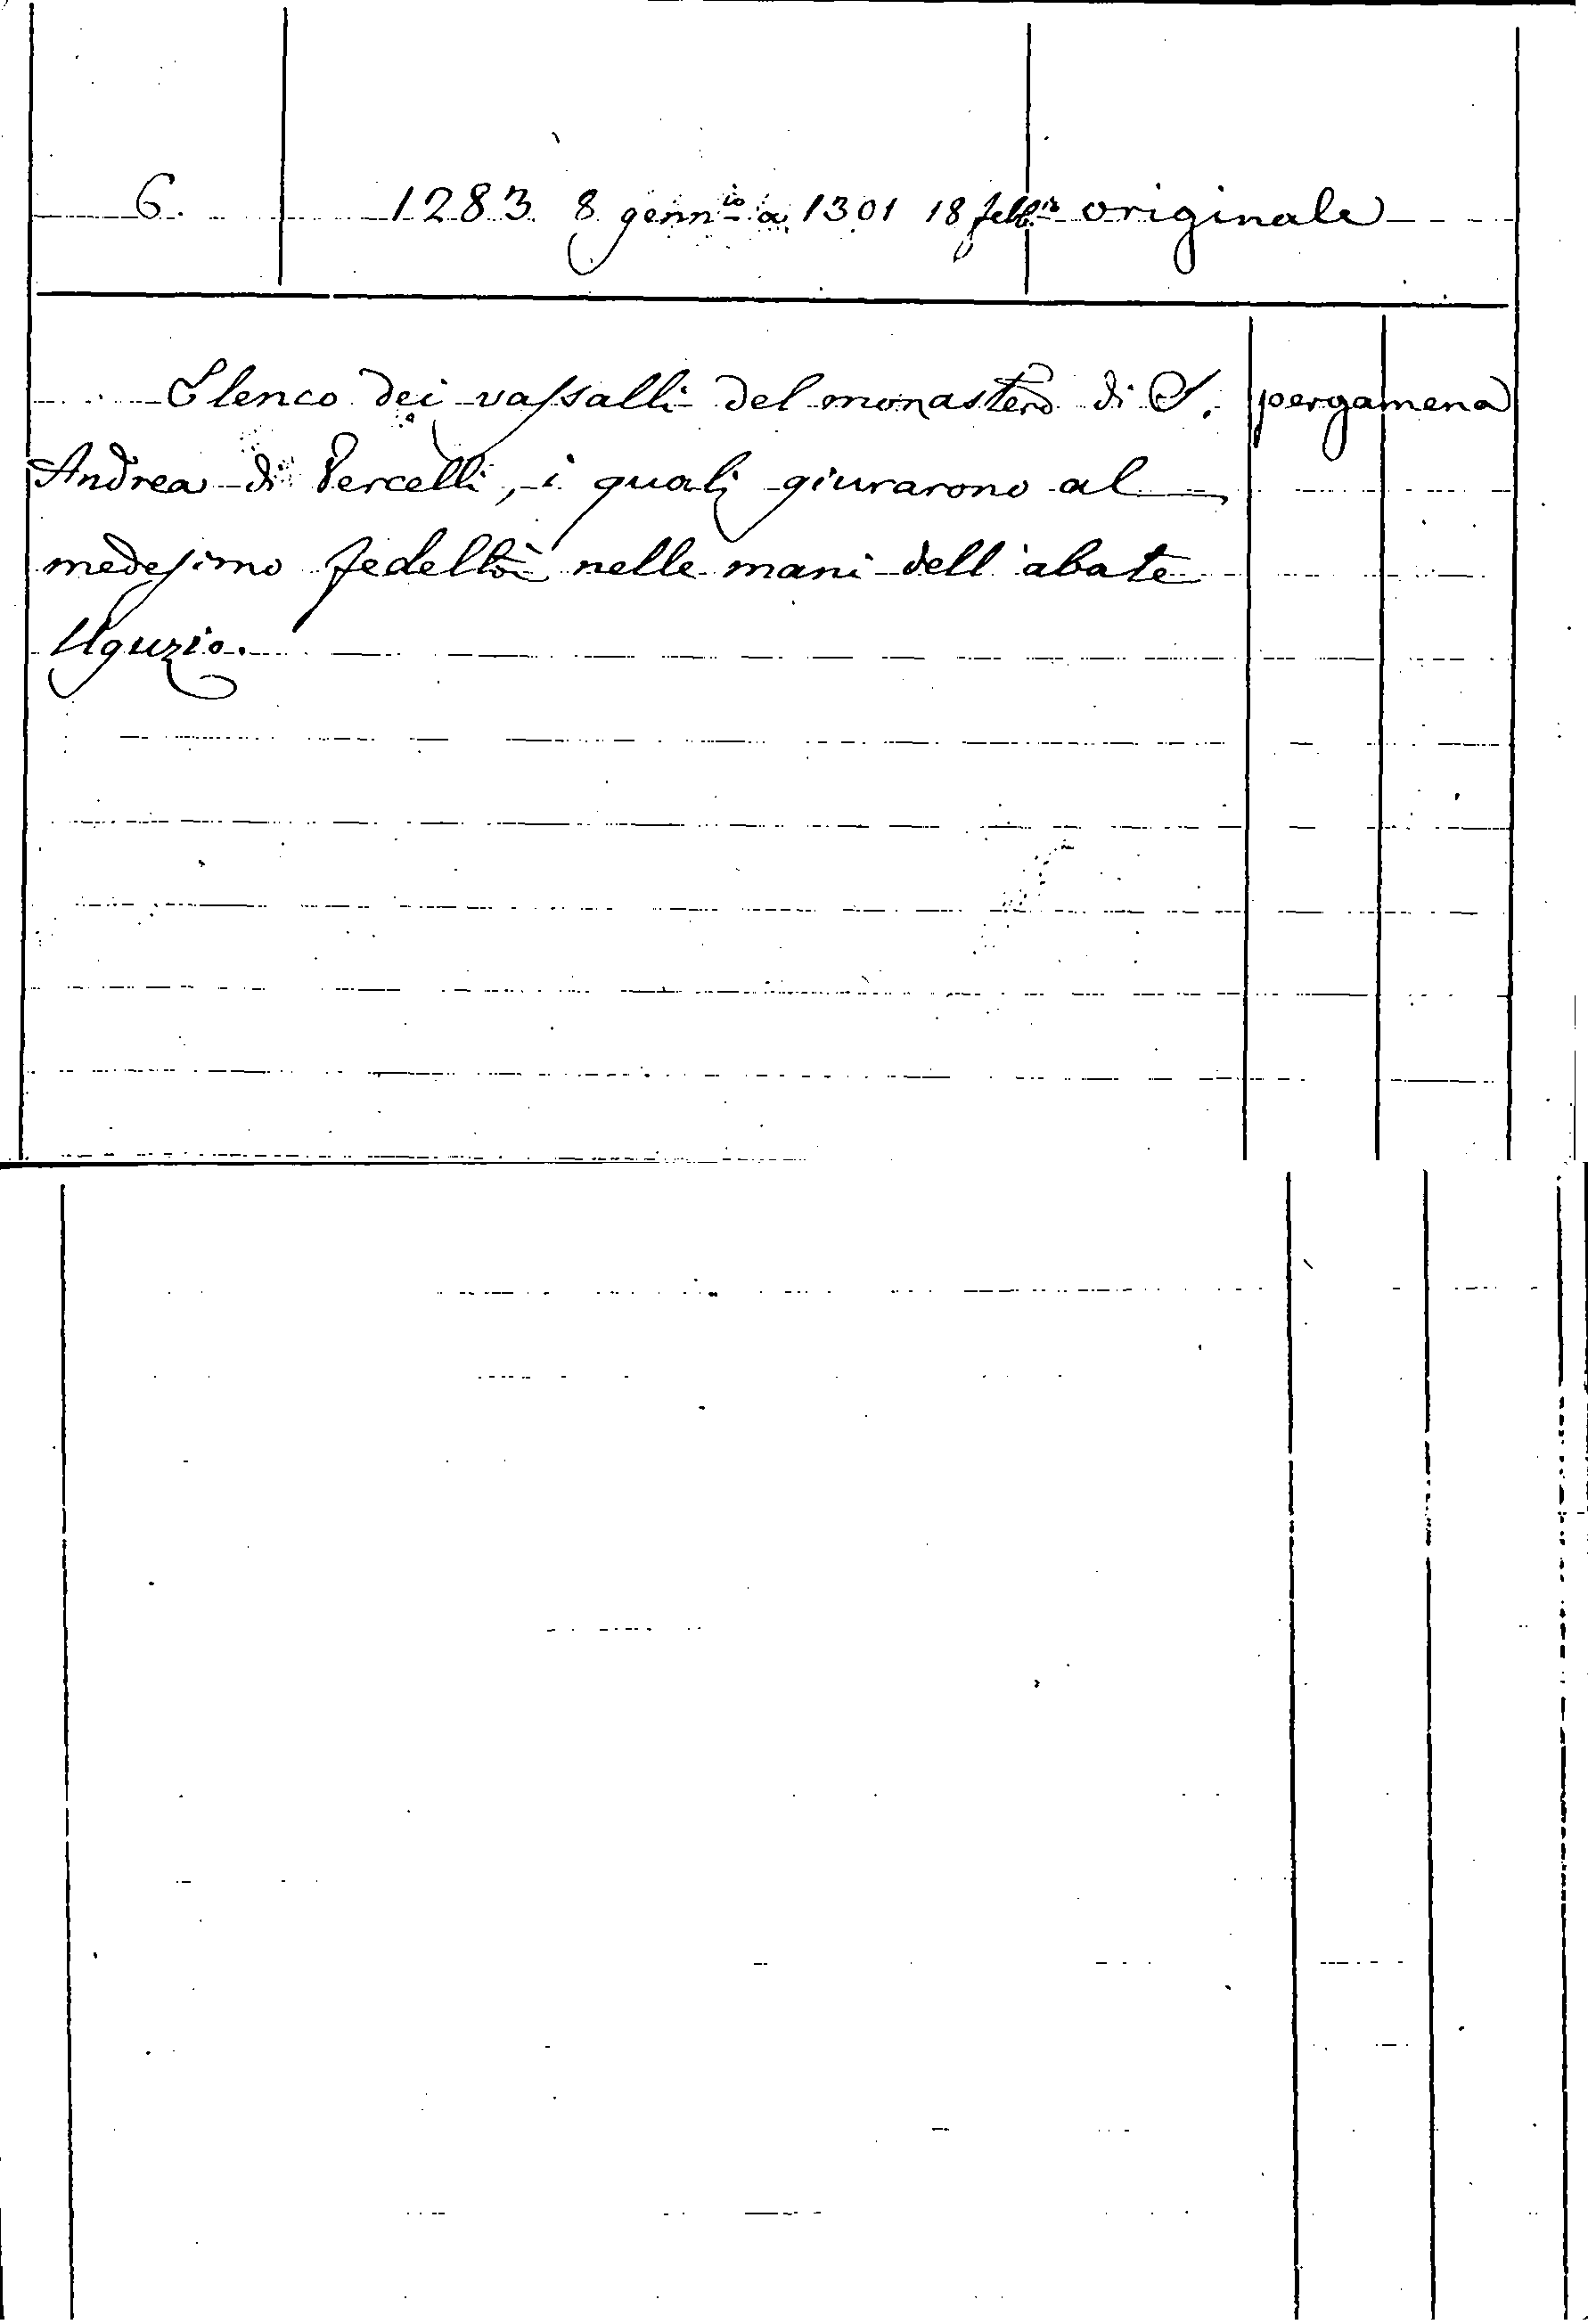 6. 1283 8 genn.io a 1301 18 febb.io originale
Elenco dei vassalli del monastero di S. pergamena
Andrea di Vercelli, i quali giurarono al
medesimo fedeltà nelle mani dell'abate
Uguzio.